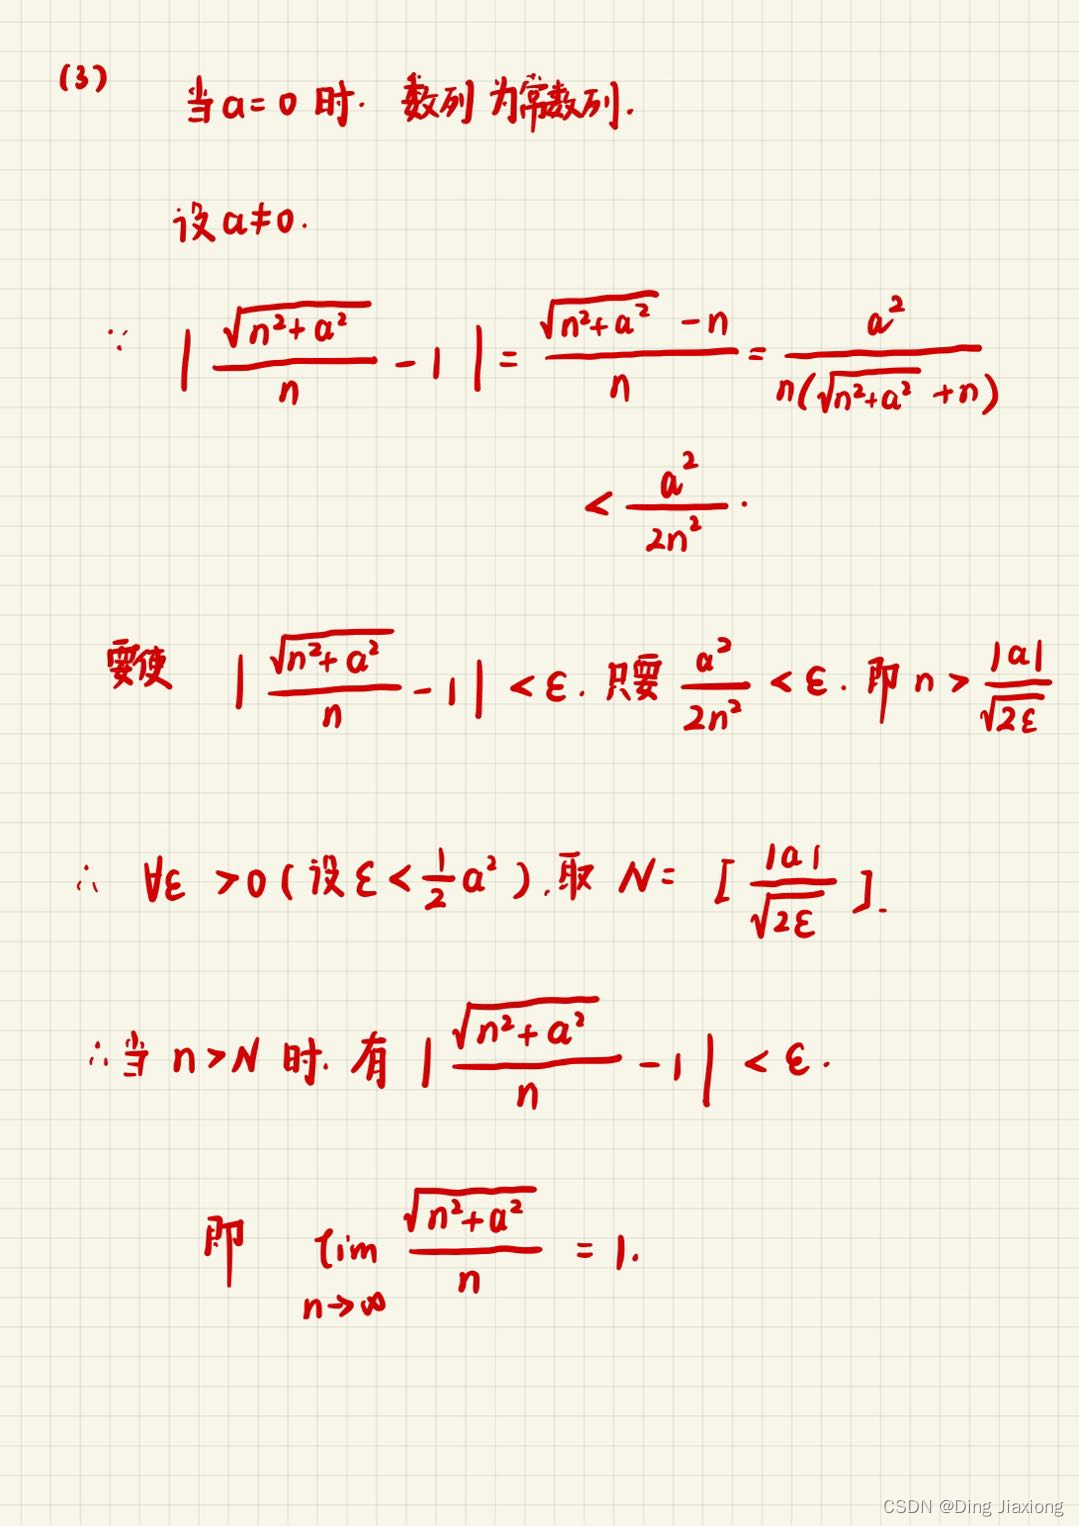 (3) 当 a = 0 时. 数列为常数列.
设 a ≠ 0.
∵ | √(n²+a²) / n - 1 | = (√(n²+a²) - n) / n = a² / n(√(n²+a²) + n)
< a² / 2n² .
要使 | √(n²+a²) / n - 1 | < ε. 只要 a² / 2n² < ε. 即 n > |a| / √(2ε)
∴ ∀ε > 0 (设 ε < 1/2 a²). 取 N = [ |a| / √(2ε) ].
∴ 当 n > N 时. 有 | √(n²+a²) / n - 1 | < ε.
即 lim n→∞ √(n²+a²) / n = 1.
CSDN @Ding Jiaxiong